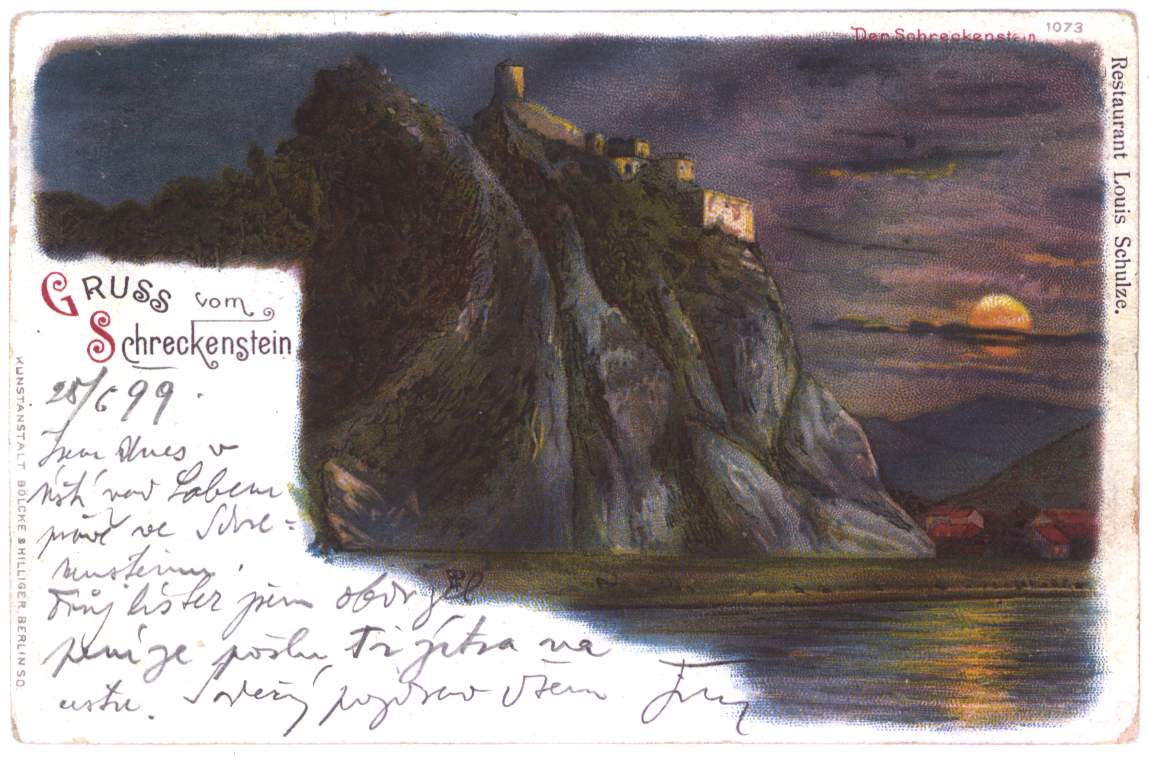 Der Schreckenstein
1073
Restaurant Louis Schulze.
GRUSS vom
Schreckenstein
KUNSTANSTALT BÖLCKE & HILLIGER, BERLIN SO.
28/6 99.
Jsem dnes v
Ústí nad Labem
právě ve Schre-
Tvůj lístek jsem obdržel
peníze pošlu Ti zítra na
Srdečný pozdrav Všem